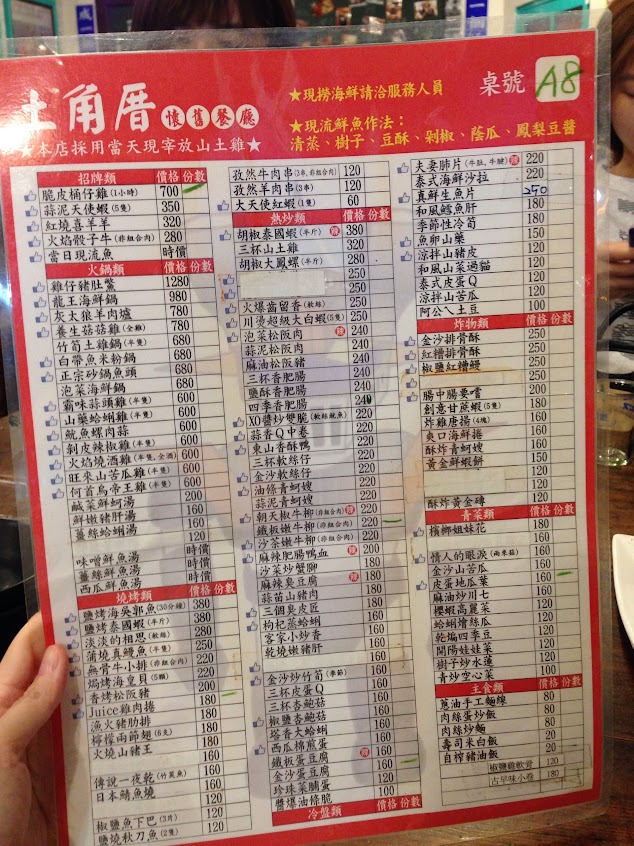 成一
土角厝 懷舊餐廳
★本店採用當天現宰放山土雞★
★現撈海鮮請洽服務人員
桌號 A8
★現流鮮魚作法：
清蒸、樹子、豆酥、剁椒、蔭瓜、鳳梨豆醬
招牌類 價格 份數
脆皮桶仔雞(1小時) 700
蒜泥天使蝦(5隻) 350
紅燒喜羊羊 320
火焰骰子牛(非組合肉) 280
當日現流魚 時價
火鍋類 價格 份數
雞仔豬肚鱉 1280
龍王海鮮鍋 980
灰太狼羊肉爐 780
養生菇菇雞(全雞) 780
竹筍土雞鍋(半隻) 680
白帶魚米粉鍋 680
正宗砂鍋魚頭 680
泡菜海鮮鍋 680
霸味蒜頭雞(半隻) 600
山藥蛤蜊雞(半隻) 600
魷魚螺肉蒜 600
剝皮辣椒雞(半隻) 600
火焰燒酒雞(半隻,全酒) 600
旺來山苦瓜雞(半隻) 600
何首烏帝王雞(半隻) 600
鹹菜鮮蚵湯 200
鮮嫩豬肝湯 160
薑絲蛤蜊湯 120
味噌鮮魚湯 時價
薑絲鮮魚湯 時價
西瓜鮮魚湯 時價
燒烤類 價格 份數
鹽烤海吳郭魚(30分鐘) 380
鹽烤泰國蝦(半斤) 380
淡淡的相思(軟絲) 280
蒲燒真鰻魚(半隻) 250
無骨牛小排(非組合肉) 220
焗烤海皇貝(5顆) 220
香烤松阪豬 200
Juice雞肉捲 180
漁火豬肋排 180
檸檬兩節翅(6支) 180
火燒山豬王 180
傳說一夜乾(竹莢魚) 160
日本鯖魚燒 160
椒鹽魚下巴(3片) 120
鹽燒秋刀魚(2隻) 120
孜然牛肉串(3串,非組合肉) 120
孜然羊肉串(3串) 120
大天使紅蝦(1隻) 60
熱炒類 價格 份數
胡椒泰國蝦(半斤) 辣 380
三杯山土雞 320
胡椒大鳳螺(半斤) 280
250
火爆齒留香(軟絲) 250
川燙超級大白蝦(5隻) 250
泡菜松阪肉 辣 240
蒜泥松阪肉 240
麻油松阪豬 240
三杯香肥腸 240
鹽酥香肥腸 240
四季香肥腸 240
XO醬炒雙脆(軟絲魷魚) 220
蒜香Q中卷 220
東山香酥鴨 220
三杯軟絲仔 220
金沙軟絲仔 220
油條青蚵嫂 220
蒜泥青蚵嫂 220
朝天椒牛柳(非組合肉) 辣 220
鐵板嫩牛柳(非組合肉) 220
沙茶嫩牛柳(非組合肉) 220
麻辣肥腸鴨血 辣 200
沙菜炒蟹腳 180
麻辣臭豆腐 辣 180
蒜苗山豬肉 180
三個臭皮匠 180
枸杞蒸蛤蜊 160
客家小炒香 160
乾燒嫩豬肝 160
金沙炒竹筍(季節) 160
三杯皮蛋Q 160
三杯杏鮑菇 160
椒鹽杏鮑菇 160
塔香大蛤蜊 160
西瓜綿煎蛋 160
鐵板蛋豆腐 辣 160
金沙蛋豆腐 160
珍珠菜脯蛋 120
醬爆油條脆 100
冷盤類 價格 份數
夫妻肺片(牛肚,牛腱) 辣 220
泰式海鮮沙拉 220
真鮮生魚片 250
和風鱈魚肝 180
季節性冷筍 180
魚卵山藥 150
涼拌山豬皮 120
和風山菜過貓 120
泰式皮蛋Q 120
涼拌山苦瓜 120
阿公ㄟ土豆 100
炸物類 價格 份數
金沙排骨酥 250
紅糟排骨酥 250
椒鹽紅糟鰻 250
250
腸中腸要嚐 200
創意甘蔗蝦(5隻) 180
炸雞唐揚(4塊) 160
爽口海鮮捲 160
酥炸青蚵嫂 160
黃金鮮蝦餅 150
120
酥炸黃金磚 120
青菜類 價格 份數
檳榔姐妹花 180
情人的眼淚(雨來菇) 160
金沙山苦瓜 160
皮蛋地瓜葉 160
麻油炒川七 160
櫻蝦高麗菜 120
蛤蜊燴絲瓜 120
乾煸四季豆 120
開陽娃娃菜 120
樹子炒水蓮 120
青炒空心菜 100
主食類 價格 份數
蔥油手工麵線 80
肉絲蛋炒飯 80
肉絲炒麵 80
壽司米白飯 20
自榨豬油飯 20
椒鹽雞軟骨 120
古早味小卷 180